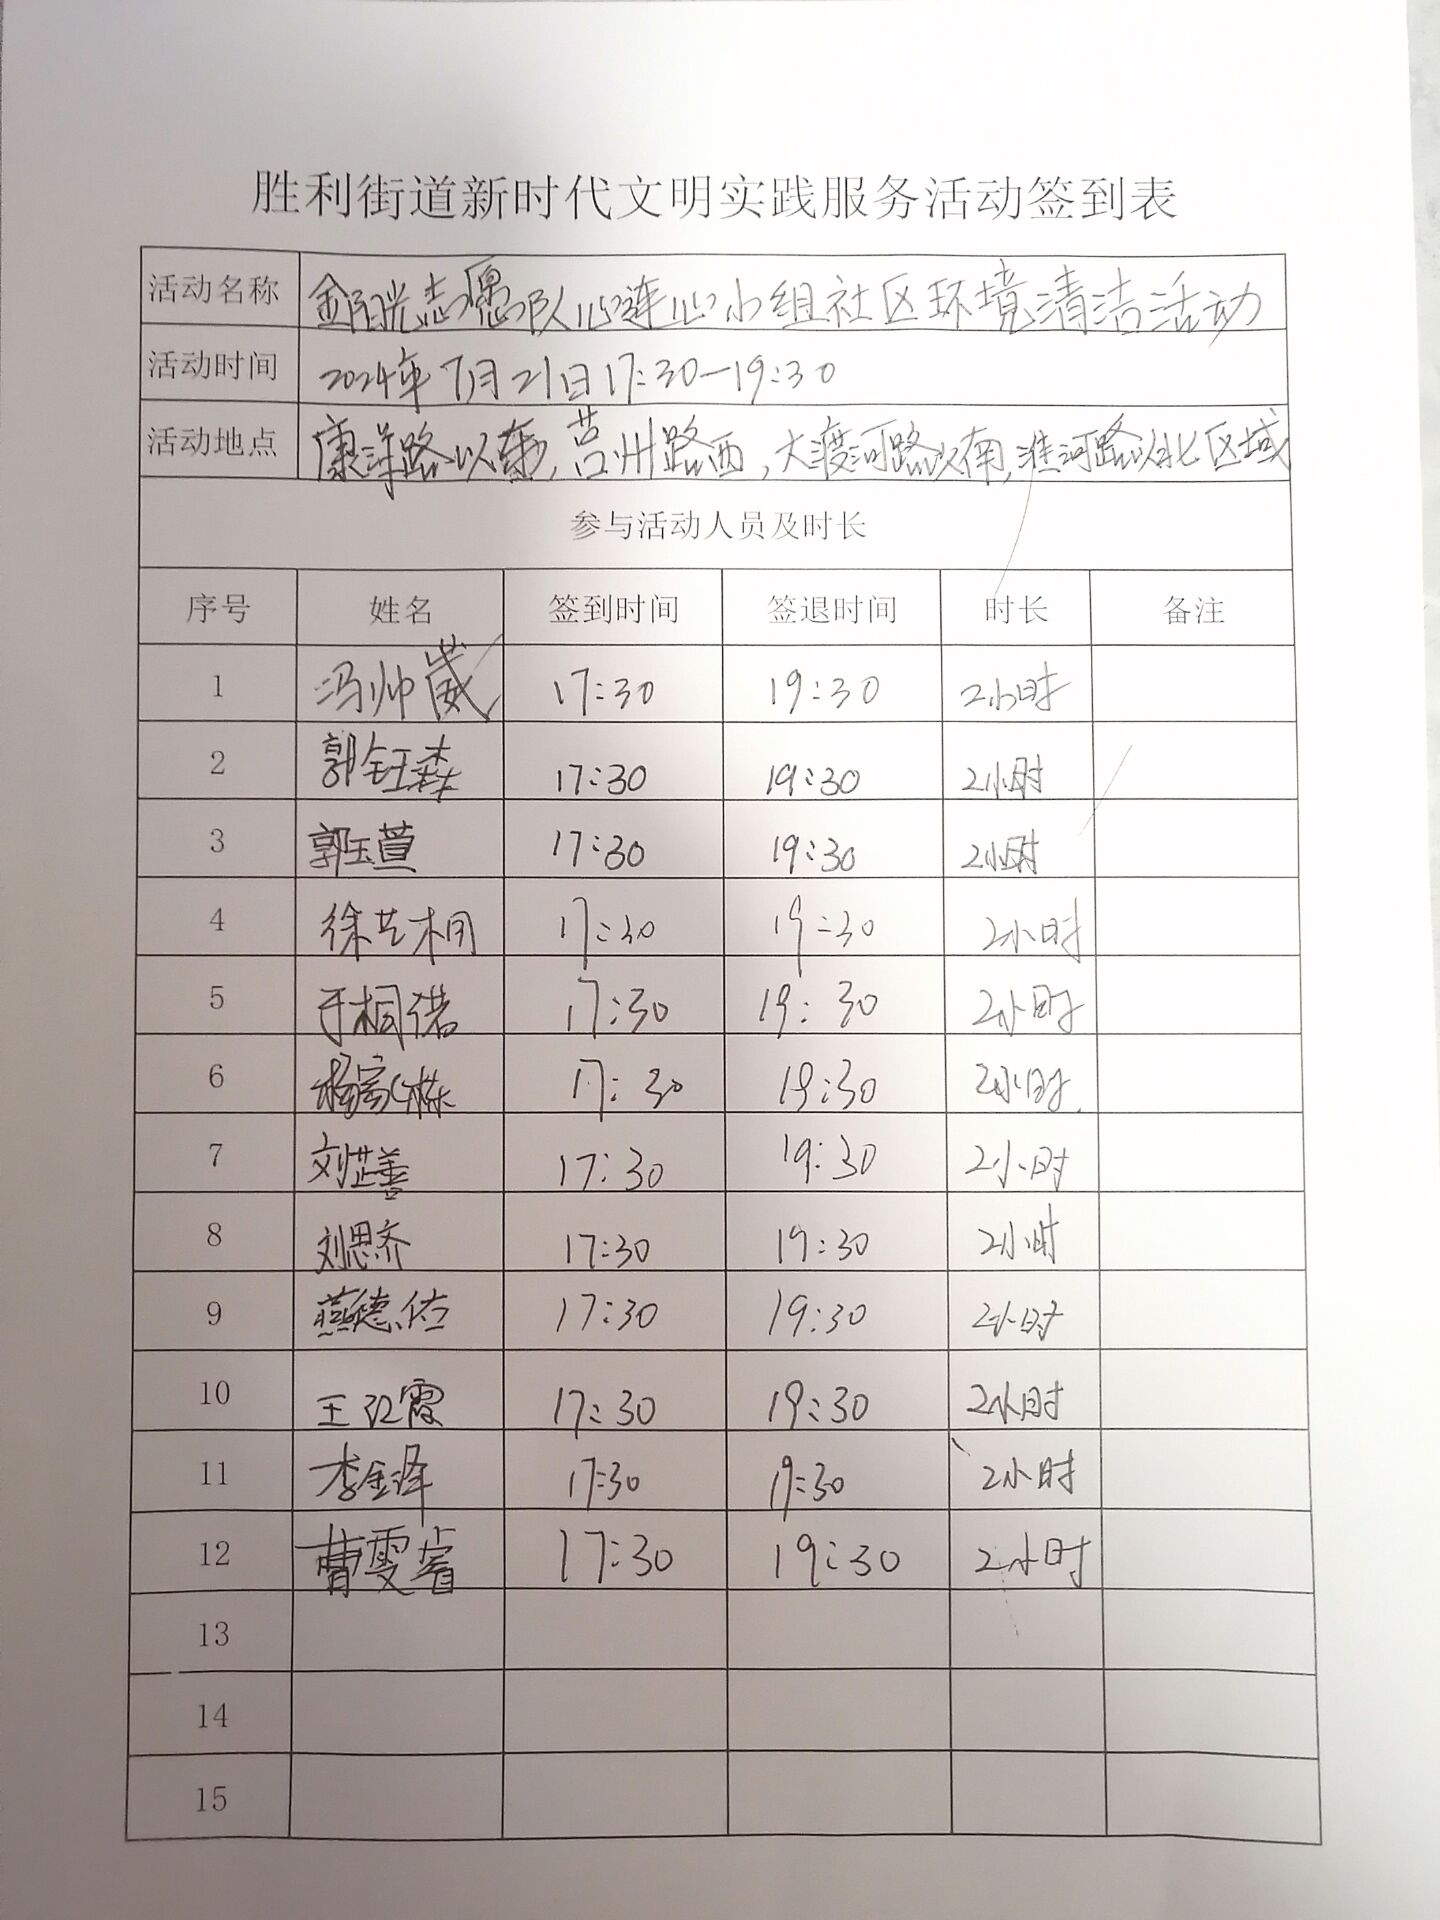 胜利街道新时代文明实践服务活动签到表
活动名称 金阳光志愿队心连心小组社区环境清洁活动
活动时间 2024年7月21日17:30-19:30
活动地点 康洋路以东,莒州路西,大渡河路以南,淮河路以北区域
参与活动人员及时长
序号 姓名 签到时间 签退时间 时长 备注
1 冯帅崴 17:30 19:30 2小时
2 郭钰森 17:30 19:30 2小时
3 郭玉萱 17:30 19:30 2小时
4 徐艺桐 17:30 19:30 2小时
5 于桐诺 17:30 19:30 2小时
6 杨家栋 17:30 19:30 2小时
7 刘芷善 17:30 19:30 2小时
8 刘思齐 17:30 19:30 2小时
9 燕德佑 17:30 19:30 2小时
10 王江霞 17:30 19:30 2小时
11 李金泽 17:30 19:30 2小时
12 曹雯睿 17:30 19:30 2小时
13
14
15